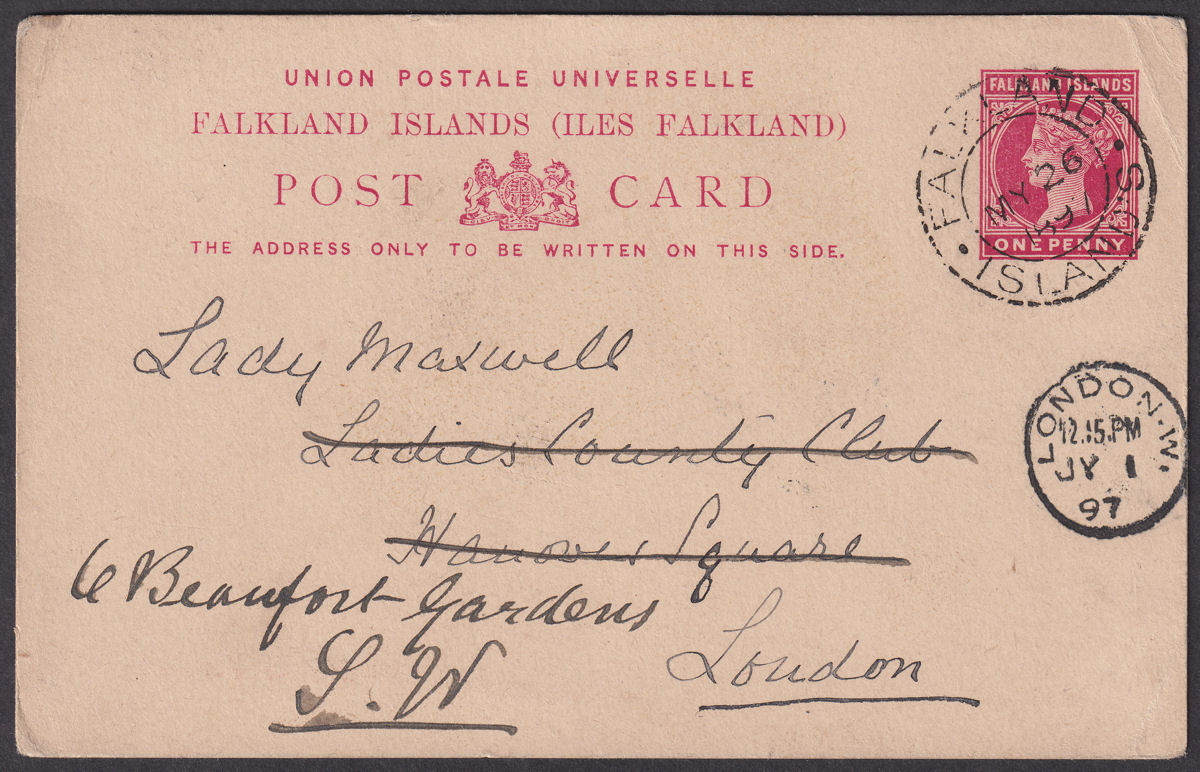 UNION POSTALE UNIVERSELLE
FALKLAND ISLANDS (ILES FALKLAND)
POST CARD
THE ADDRESS ONLY TO BE WRITTEN ON THIS SIDE.
FALKLAND ISLANDS
ONE PENNY
FALKLAND ISLANDS
MY 26
97
Lady Maxwell
Ladies County Club
Hanover Square
6 Beaufort Gardens
S.W
London
LONDON.W.
12.15.PM
JY 1
97